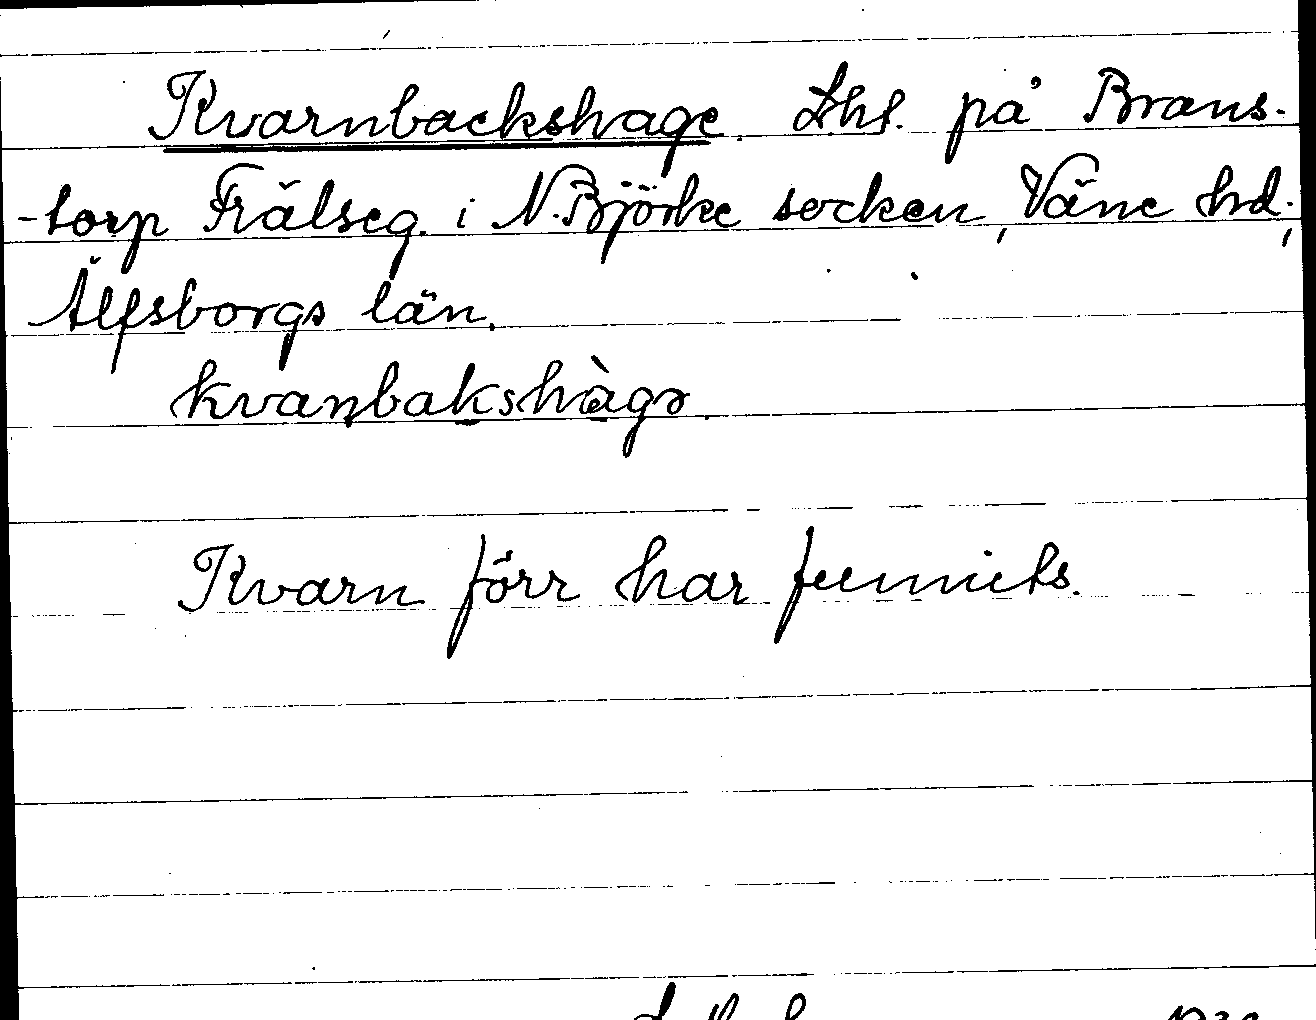 Kvarnbackshage. Lhf. på Brans-
-torp Frälseg. i N. Björke socken, Väne hd.,
Älfsborgs län.
kvaṇbakshàgə.
Kvarn förr har funnits.